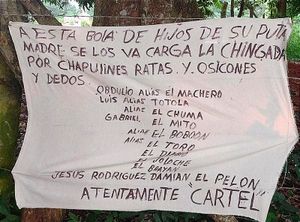 A ESTA BOLA DE HIJOS DE SU PUTA
MADRE SE LOS VA CARGA LA CHINGADA
POR CHAPULINES RATAS Y OSICONES
Y DEDOS.
OBDULIO ALIAS EL MACHERO
LUIS ALIAS TOTOLA
ALIAS EL CHUMA
GABRIEL EL MITO
ALIAS EL BOBOON
ALIAS EL TORO
EL DIABLO
EL JOLOCHE
EL BRAYAN
JESUS RODRIGUEZ DAMIAN EL PELON
ATENTAMENTE "CARTEL"